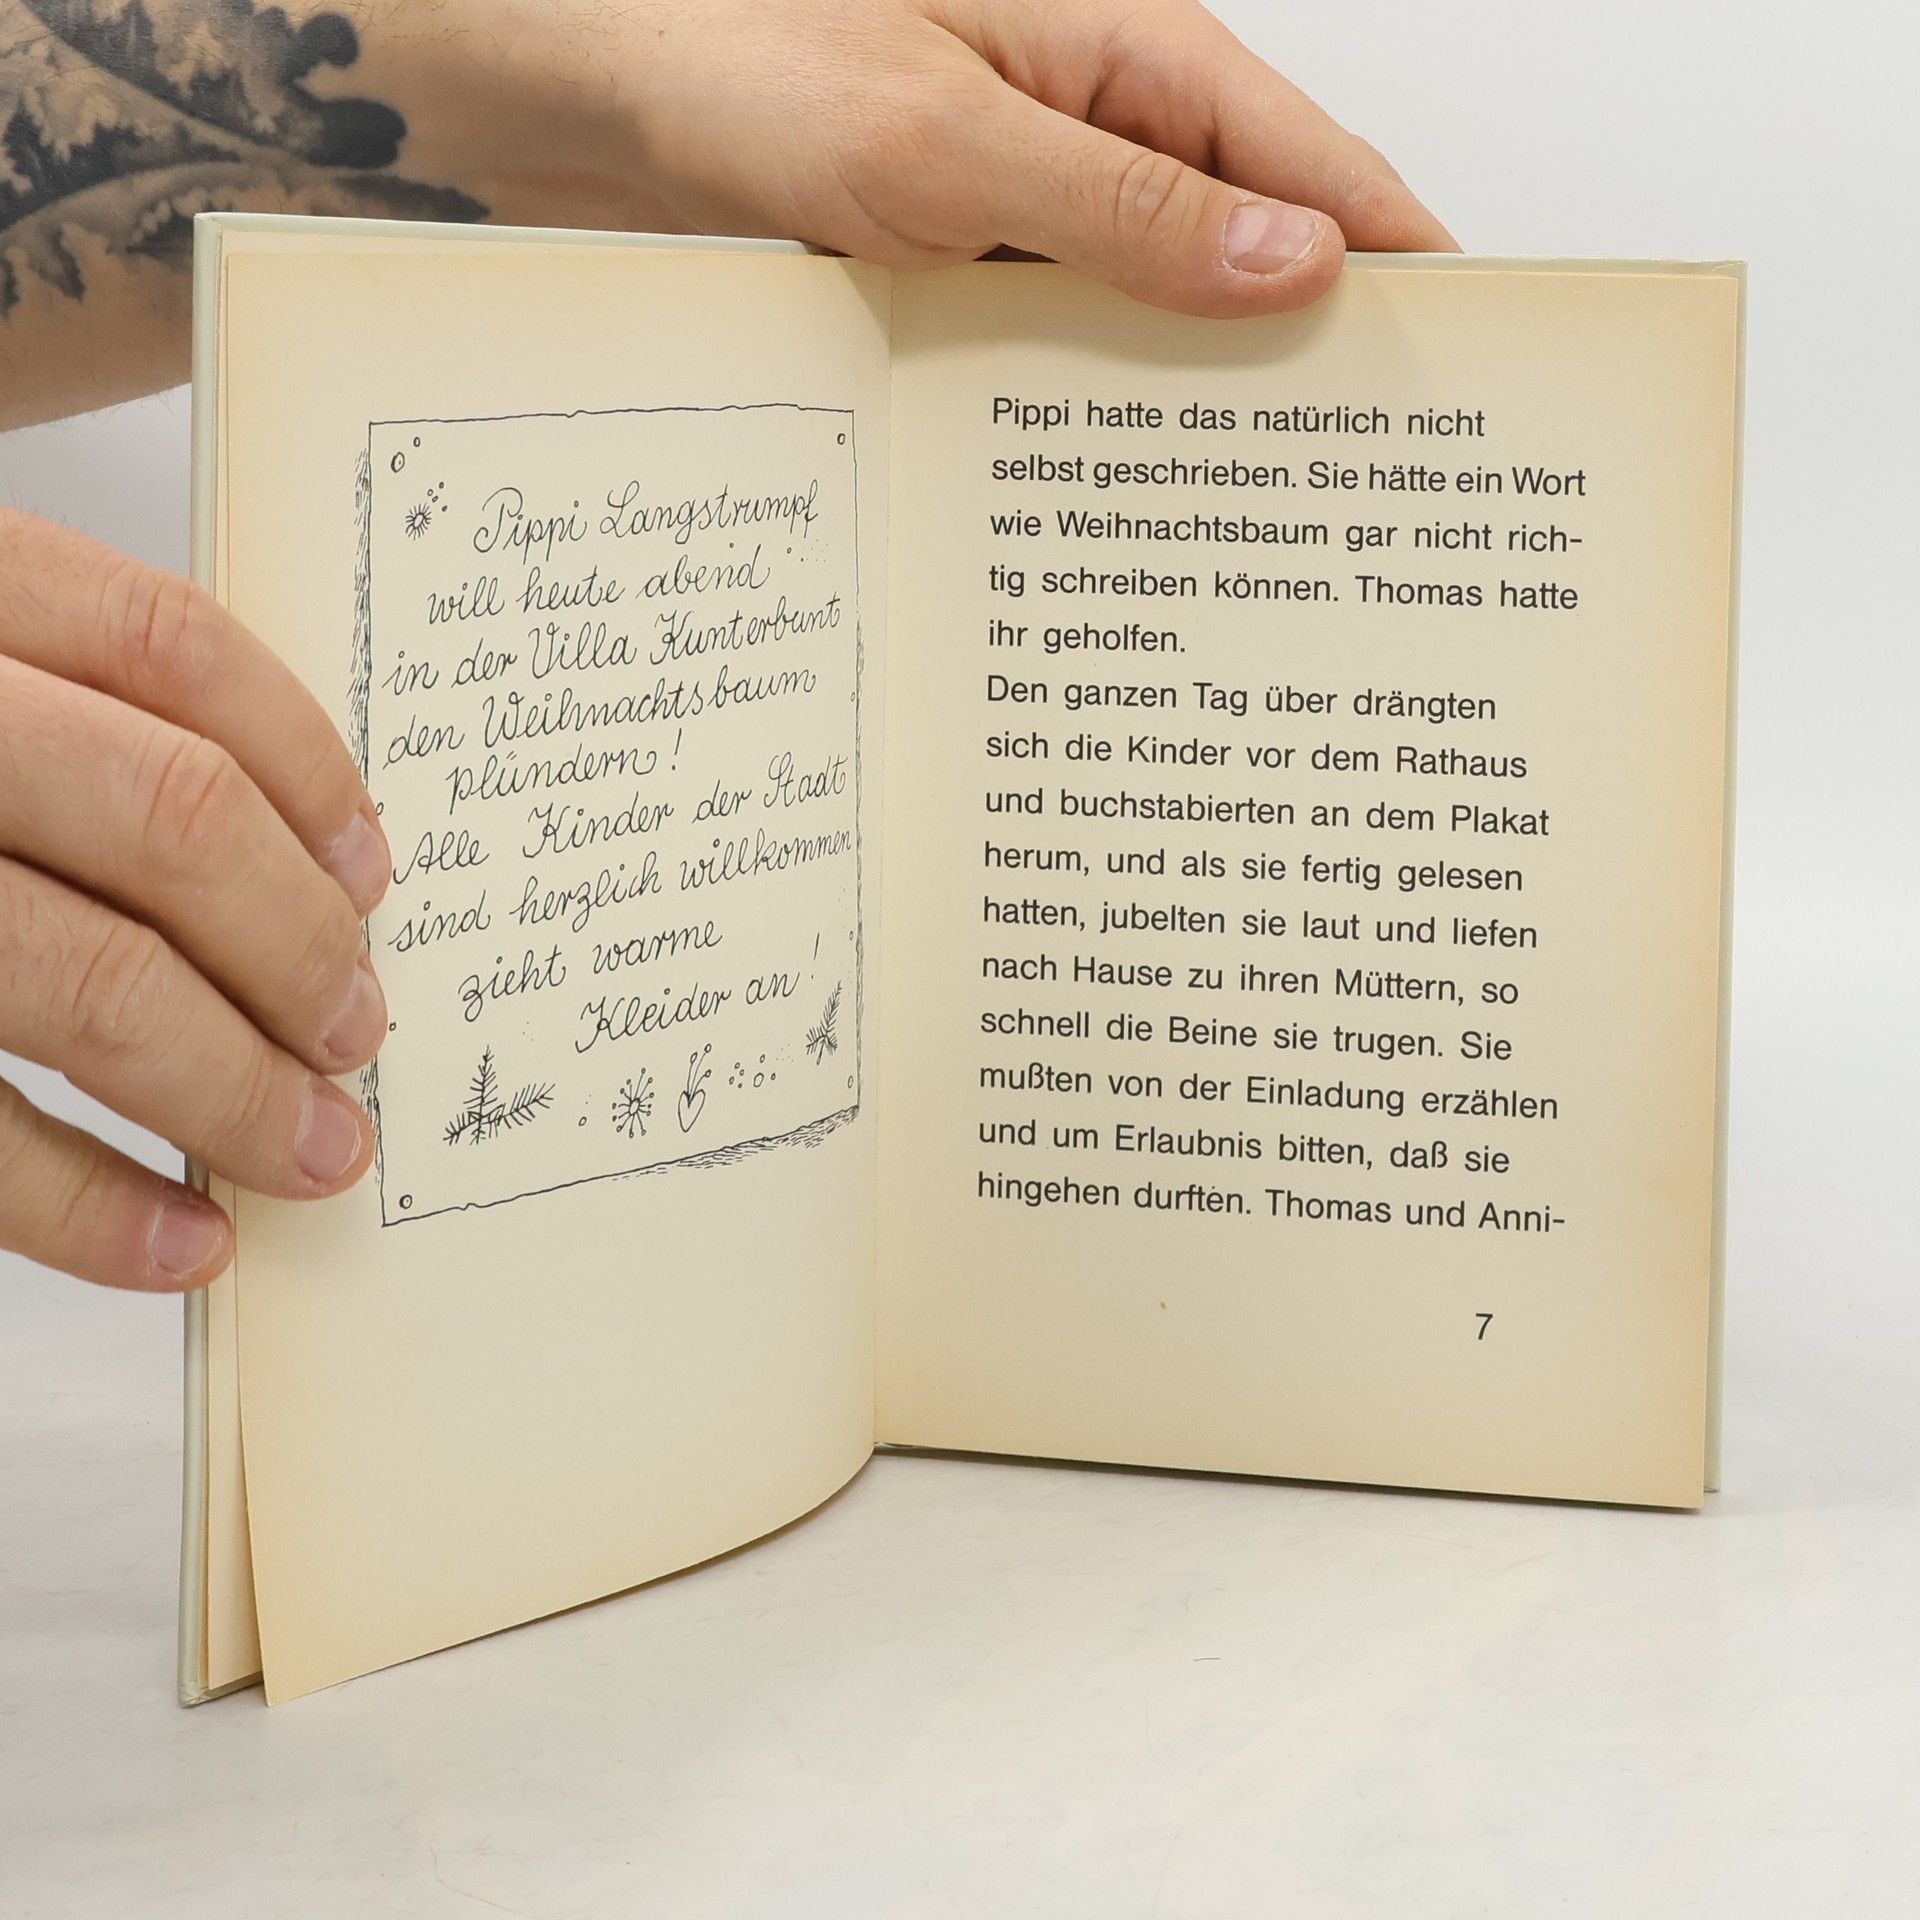 Pippi Langstrumpf
will heute abend
in der Villa Kunterbunt
den Weihnachtsbaum
plündern!
Alle Kinder der Stadt
sind herzlich willkommen
zieht warme
Kleider an!
Pippi hatte das natürlich nicht
selbst geschrieben. Sie hätte ein Wort
wie Weihnachtsbaum gar nicht rich-
tig schreiben können. Thomas hatte
ihr geholfen.
Den ganzen Tag über drängten
sich die Kinder vor dem Rathaus
und buchstabierten an dem Plakat
herum, und als sie fertig gelesen
hatten, jubelten sie laut und liefen
nach Hause zu ihren Müttern, so
schnell die Beine sie trugen. Sie
mußten von der Einladung erzählen
und um Erlaubnis bitten, daß sie
hingehen durften. Thomas und Anni-
7